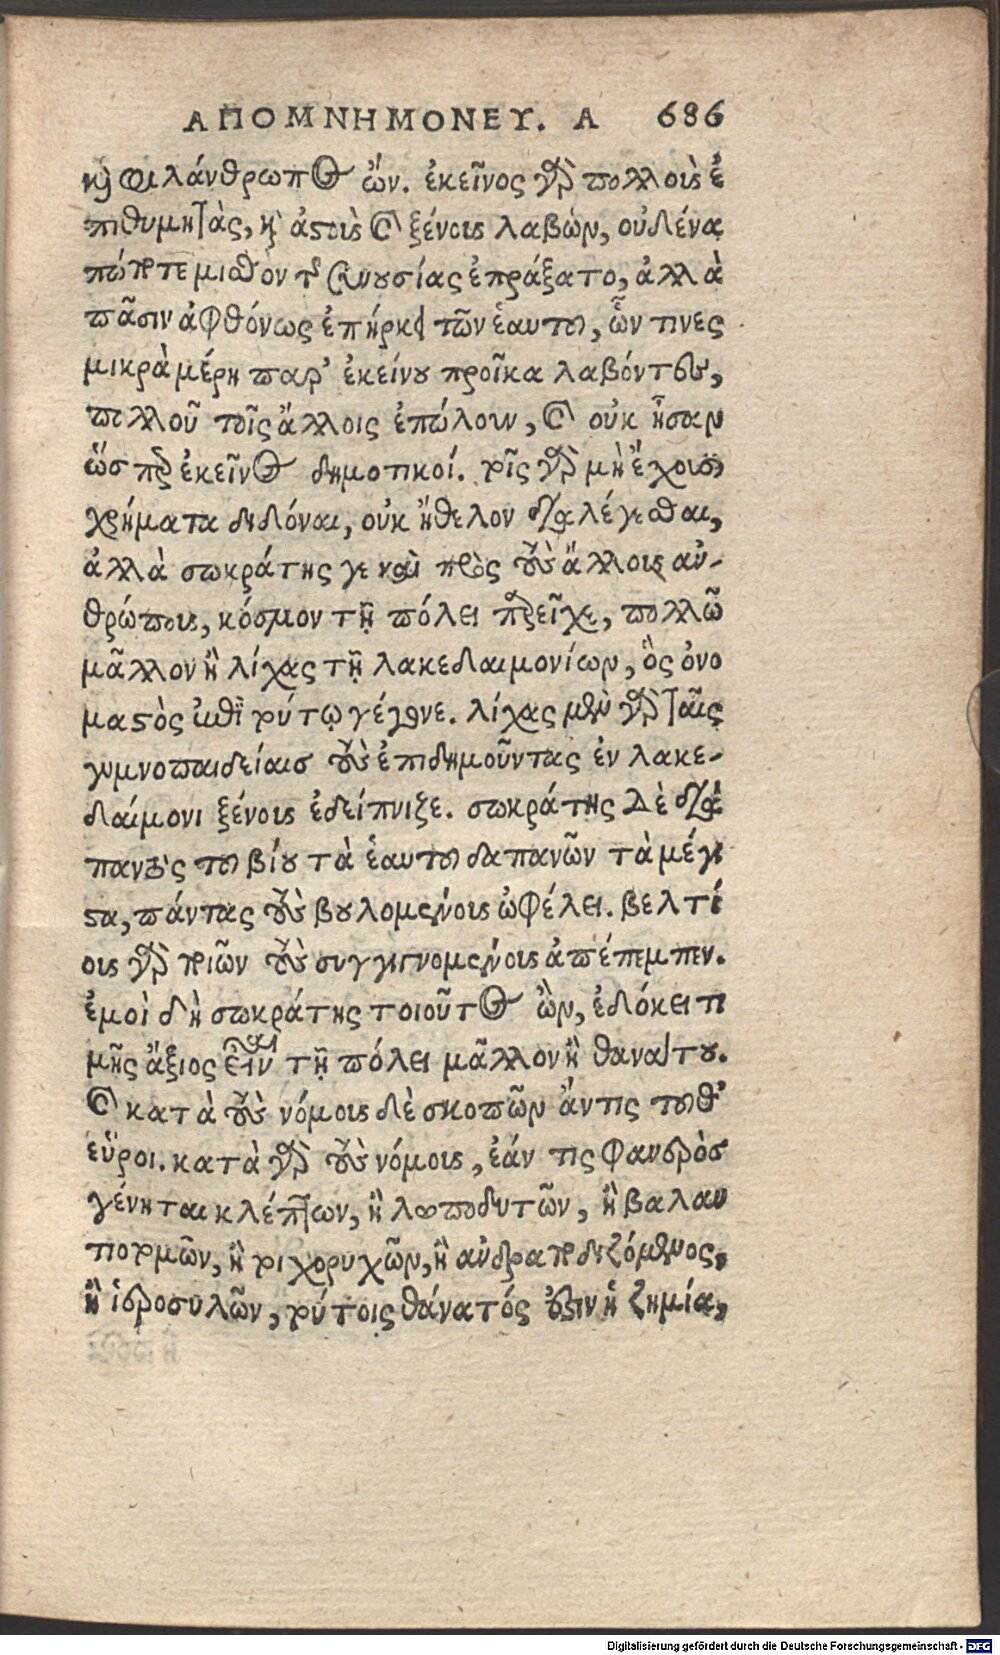 ΑΠΟΜΝΗΜΟΝΕΥ. Α 686
καὶ φιλάνθρωπος ὤν. ἐκεῖνος γὰρ πολλοὺς ἐ
πιθυμητὰς, καὶ ἀστοὺς καὶ ξένους λαβὼν, οὐδένα
πώποτε μισθὸν τῆς συνουσίας ἐπράξατο, ἀλλὰ
πᾶσιν ἀφθόνως ἐπήρκει τῶν ἑαυτοῦ, ὧν τινες
μικρὰ μέρη παρ' ἐκείνου προῖκα λαβόντες,
πολλοῦ τοῖς ἄλλοις ἐπώλουν, καὶ οὐκ ἦσαν
ὥσπερ ἐκεῖνος δημοτικοί. τοῖς γὰρ μὴ ἔχουσι
χρήματα διδόναι, οὐκ ἤθελον διαλέγεσθαι,
ἀλλὰ σωκράτης γε καὶ πρὸς τοὺς ἄλλους αν-
θρώπους, κόσμον τῇ πόλει παρεῖχε, πολλῷ
μᾶλλον ἢ λίχας τῇ λακεδαιμονίων, ὃς ὀνο
μαστὸς ἐπὶ τούτῳ γέγονε. λίχας μὲν γὰρ ταῖς
γυμνοπαιδείαις τοὺς ἐπιδημοῦντας ἐν λακε-
δαίμονι ξένους ἐδείπνιζε. σωκράτης δὲ διὰ
παντὸς τοῦ βίου τὰ ἑαυτοῦ δαπανῶν τὰ μέγι
στα, πάντας τοὺς βουλομένους ὠφέλει. βελτί
ους γὰρ ποιῶν τοὺς συγγιγνομένους ἀπέπεμπεν.
ἐμοὶ δὴ σωκράτης τοιοῦτος ὢν, ἐδόκει τι
μῆς ἄξιος εἶναι τῇ πόλει μᾶλλον ἢ θανάτου.
καὶ κατὰ τοὺς νόμους δὲ σκοπῶν ἄν τις τοῦθ'
εὕροι. κατὰ γὰρ τοὺς νόμους, ἐάν τις φανερὸς
γένηται κλέπτων, ἢ λωποδυτῶν, ἢ βαλαν
τιοτομῶν, ἢ τοιχορυχῶν, ἢ ανδραποδιζόμενος,
ἢ ἱεροσυλῶν, τούτοις θάνατός ἐστιν ἡ ζημία,
Digitalisierung gefördert durch die Deutsche Forschungsgemeinschaft - DFG